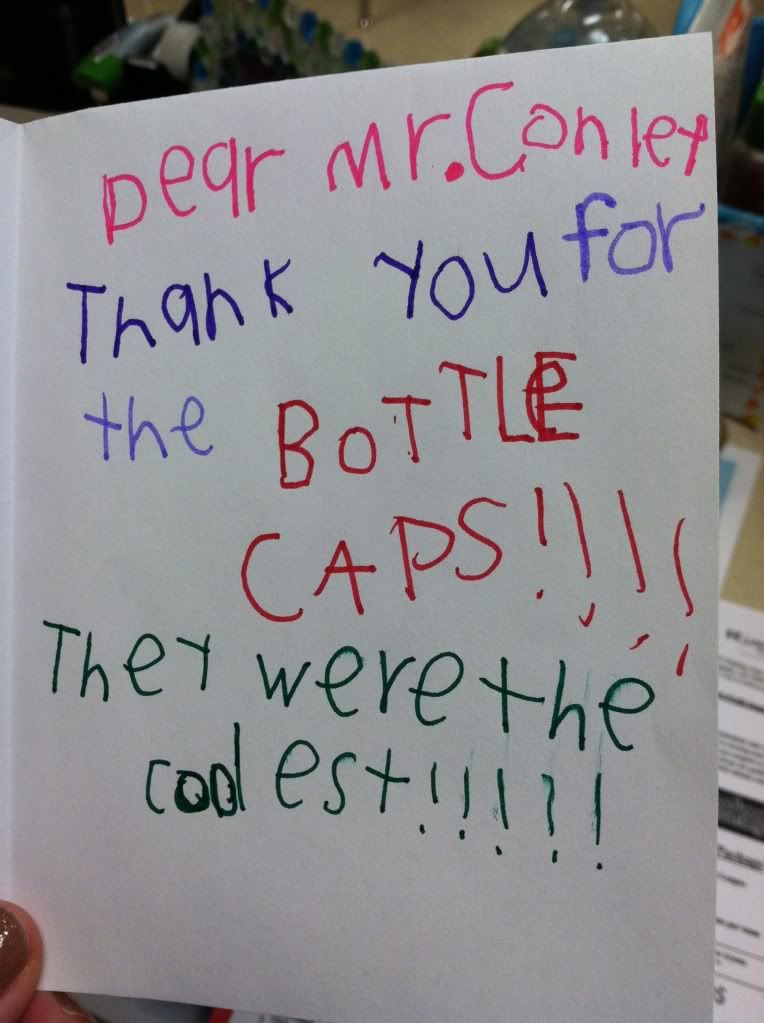 Dear Mr. Conley
Thank You for
the BOTTLE
CAPS!!!!
They were the
coolest!!!!!